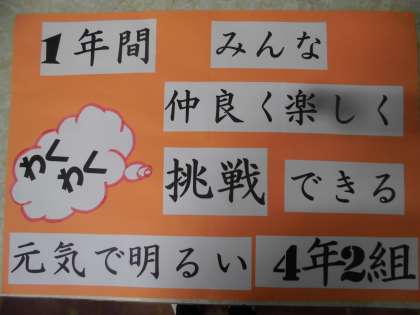 1年間 みんな
仲良く楽しく
わく
わく
挑戦 できる
元気で明るい 4年2組